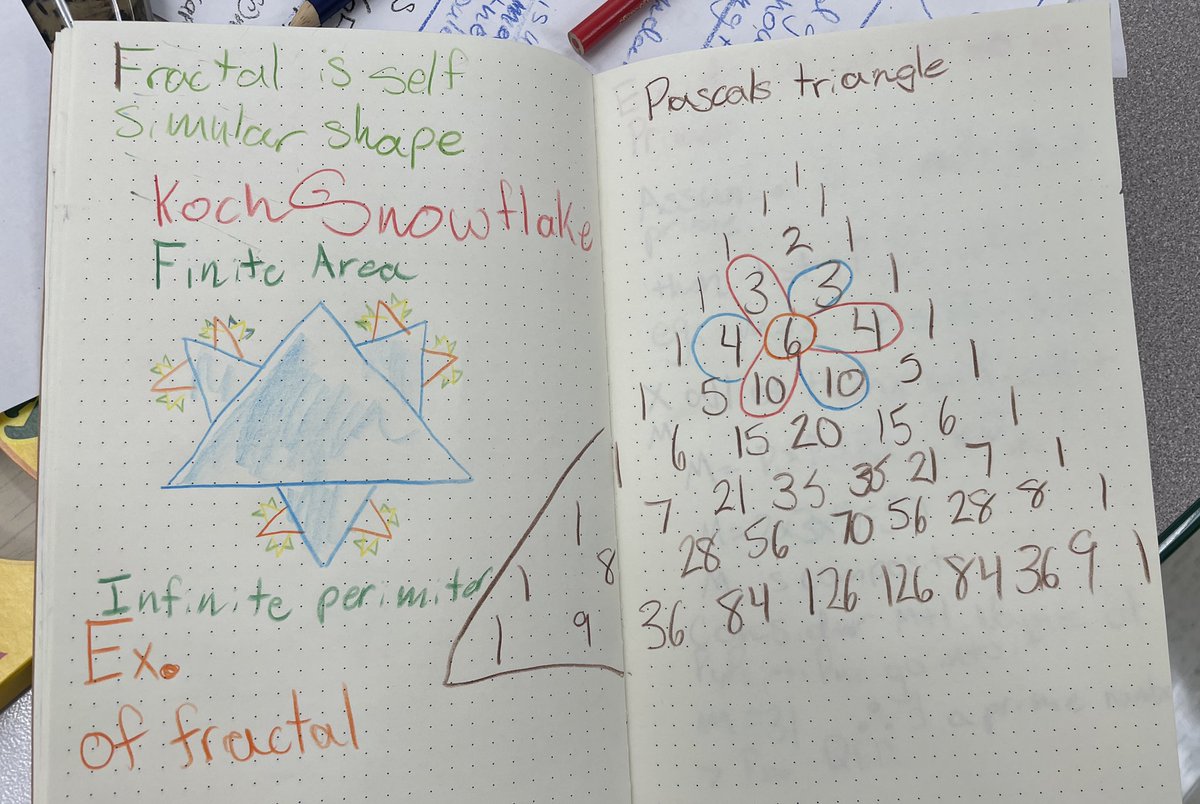 Fractal is self
Simular shape
Koch Snowflake
Finite Area
Infinite perimiter
Ex.
of fractal
Pascals triangle
1
1 1
1 2 1
1 3 3 1
1 4 6 4 1
1 5 10 10 5 1
1 6 15 20 15 6 1
1 7 21 35 35 21 7 1
1 8 28 56 70 56 28 8 1
1 9 36 84 126 126 84 36 9 1